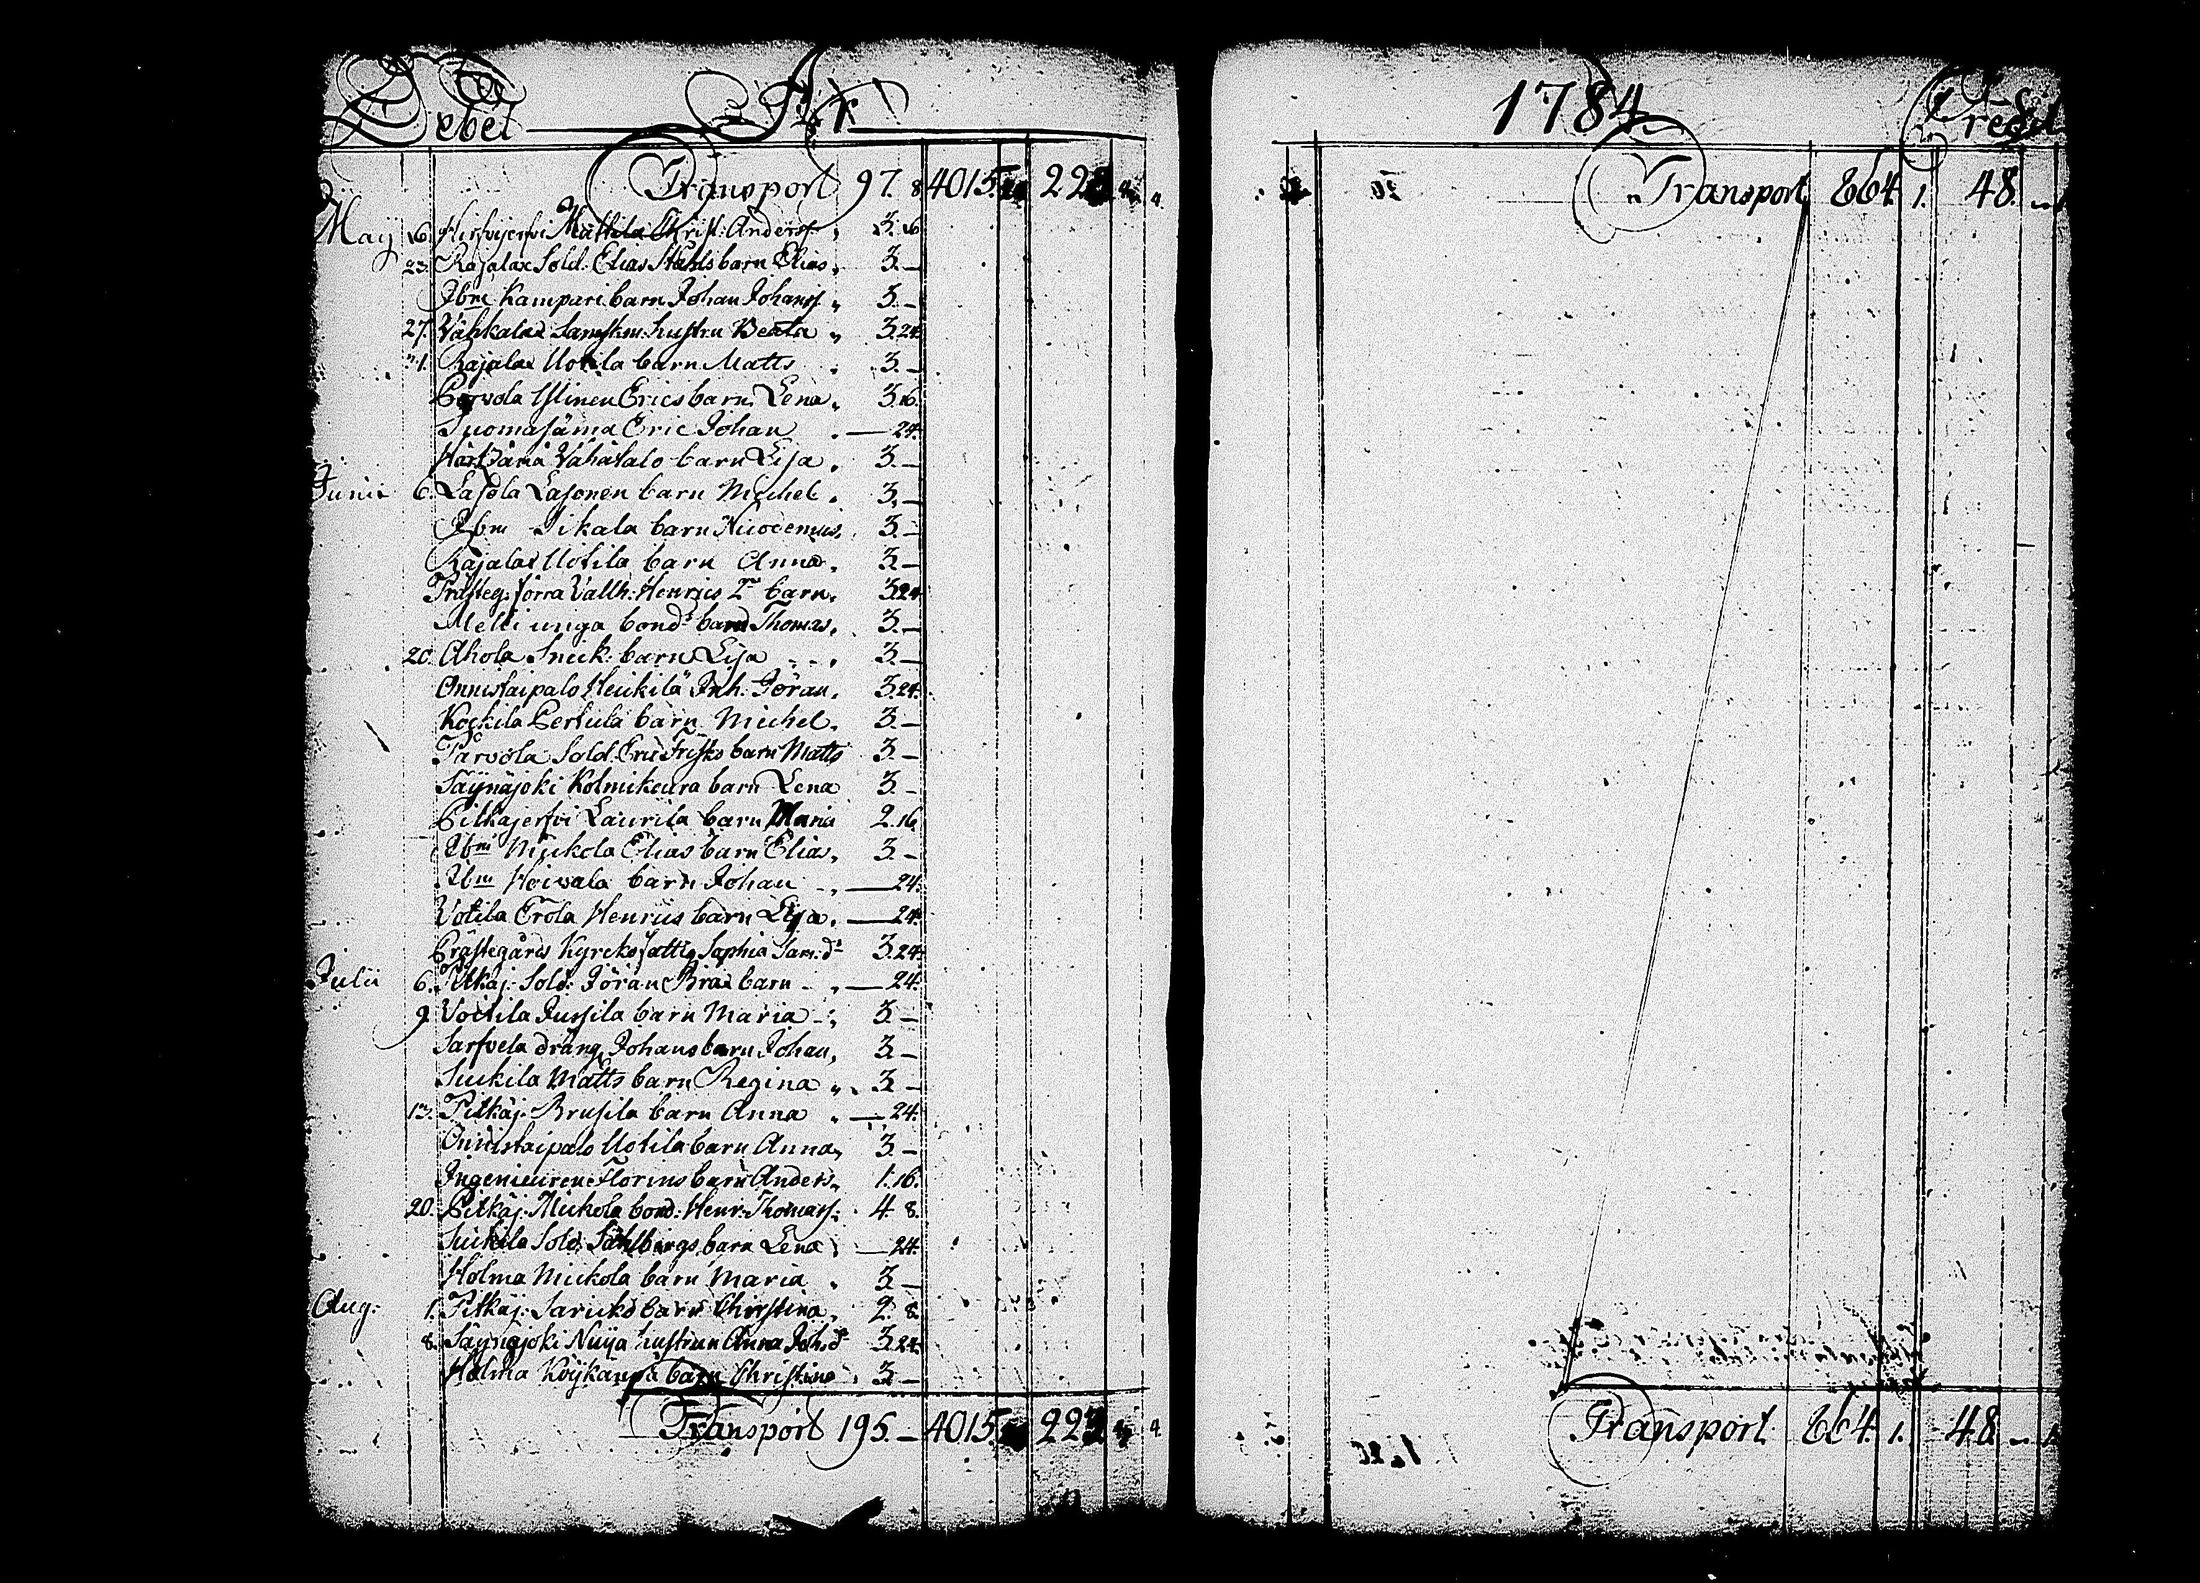 Debet År
Transport 97. 8 4015. 223
May 16. Hirfvijerfvi Mattila Christ: Anderss: 3. 16
23. Rajalax Sold: Elias Ståhls barn Elias, 3. —
Ibm Kampari barn Johan Johanss. „ 3. —
27. Vähkalax hustru Beata „ 3. 24
31. Rajalax Uotila barn Matts 3. —
Erics barn Lena „ 3. 16.
Suomasäma Eric Johan — 24.
Vähätalo barn Lisa. 3. —
Junii 6. Lasola Lasonen barn Michel. 3. —
Ibm Sikala barn Nicodemus, 3. —
Rajalax Uotila barn Anna. 3. —
Prästeg: Henrics barn. 3. 24
Melli unga bond: barn Thomas. 3. —
20. Ahola Snick: barn Lisa 3. —
Onnistaipalo Heikilä Inh: Jöran. 3. 24.
Koskila Pertula barn Michel. 3. —
Parvola Sold: Eric Frisks barn Matts 3. —
Säynäjoki Kolmikeura barn Lena 3. —
Pitkäjerfvi Laurila barn Maria 2. 16
Ibm Mickola Elias barn Elias, 3. —
Ibm Hoivala barn Johan — 24.
Votila Erola Henrics barn Lisa. — 24
Prästegårds Kyrckofattig Sophia Sam: dr 3. 24
Julii 6. Pitkäj: Sold: Jöran Bras barn — 24.
9. Voitila Jussila barn Maria 3. —
Sarfvela dräng Johans barn Johan, 3. —
Suikila Matts barn Regina „ 3. —
13. Pitkäj: Brusila barn Anna — 24.
Onnistaipalo Uotila barn Anna, 3. —
Ingenieuren Florins barn Anders, 1. 16.
20. Pitkäj: Mickola bond: Henr: Thomass: 4. 8.
Suikila Sold: Sahlbergs barn Lena — 24.
Holma Mickola barn Maria 3. —
Aug: 1. Pitkäj: barn Christina. 2. 8.
8. Säynäjoki Nuija hustrun Anna Joh: dr 3. 24.
Holma barn Christina 3. —
Transport 195. — 4015. 223. 4.
1784 Credit
Transport 664. 1. 48.
Transport 664. 1. 48.